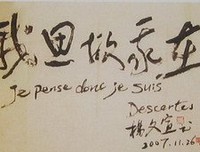 我思故我在
je pense donc je suis
Descartes
2007.11.26